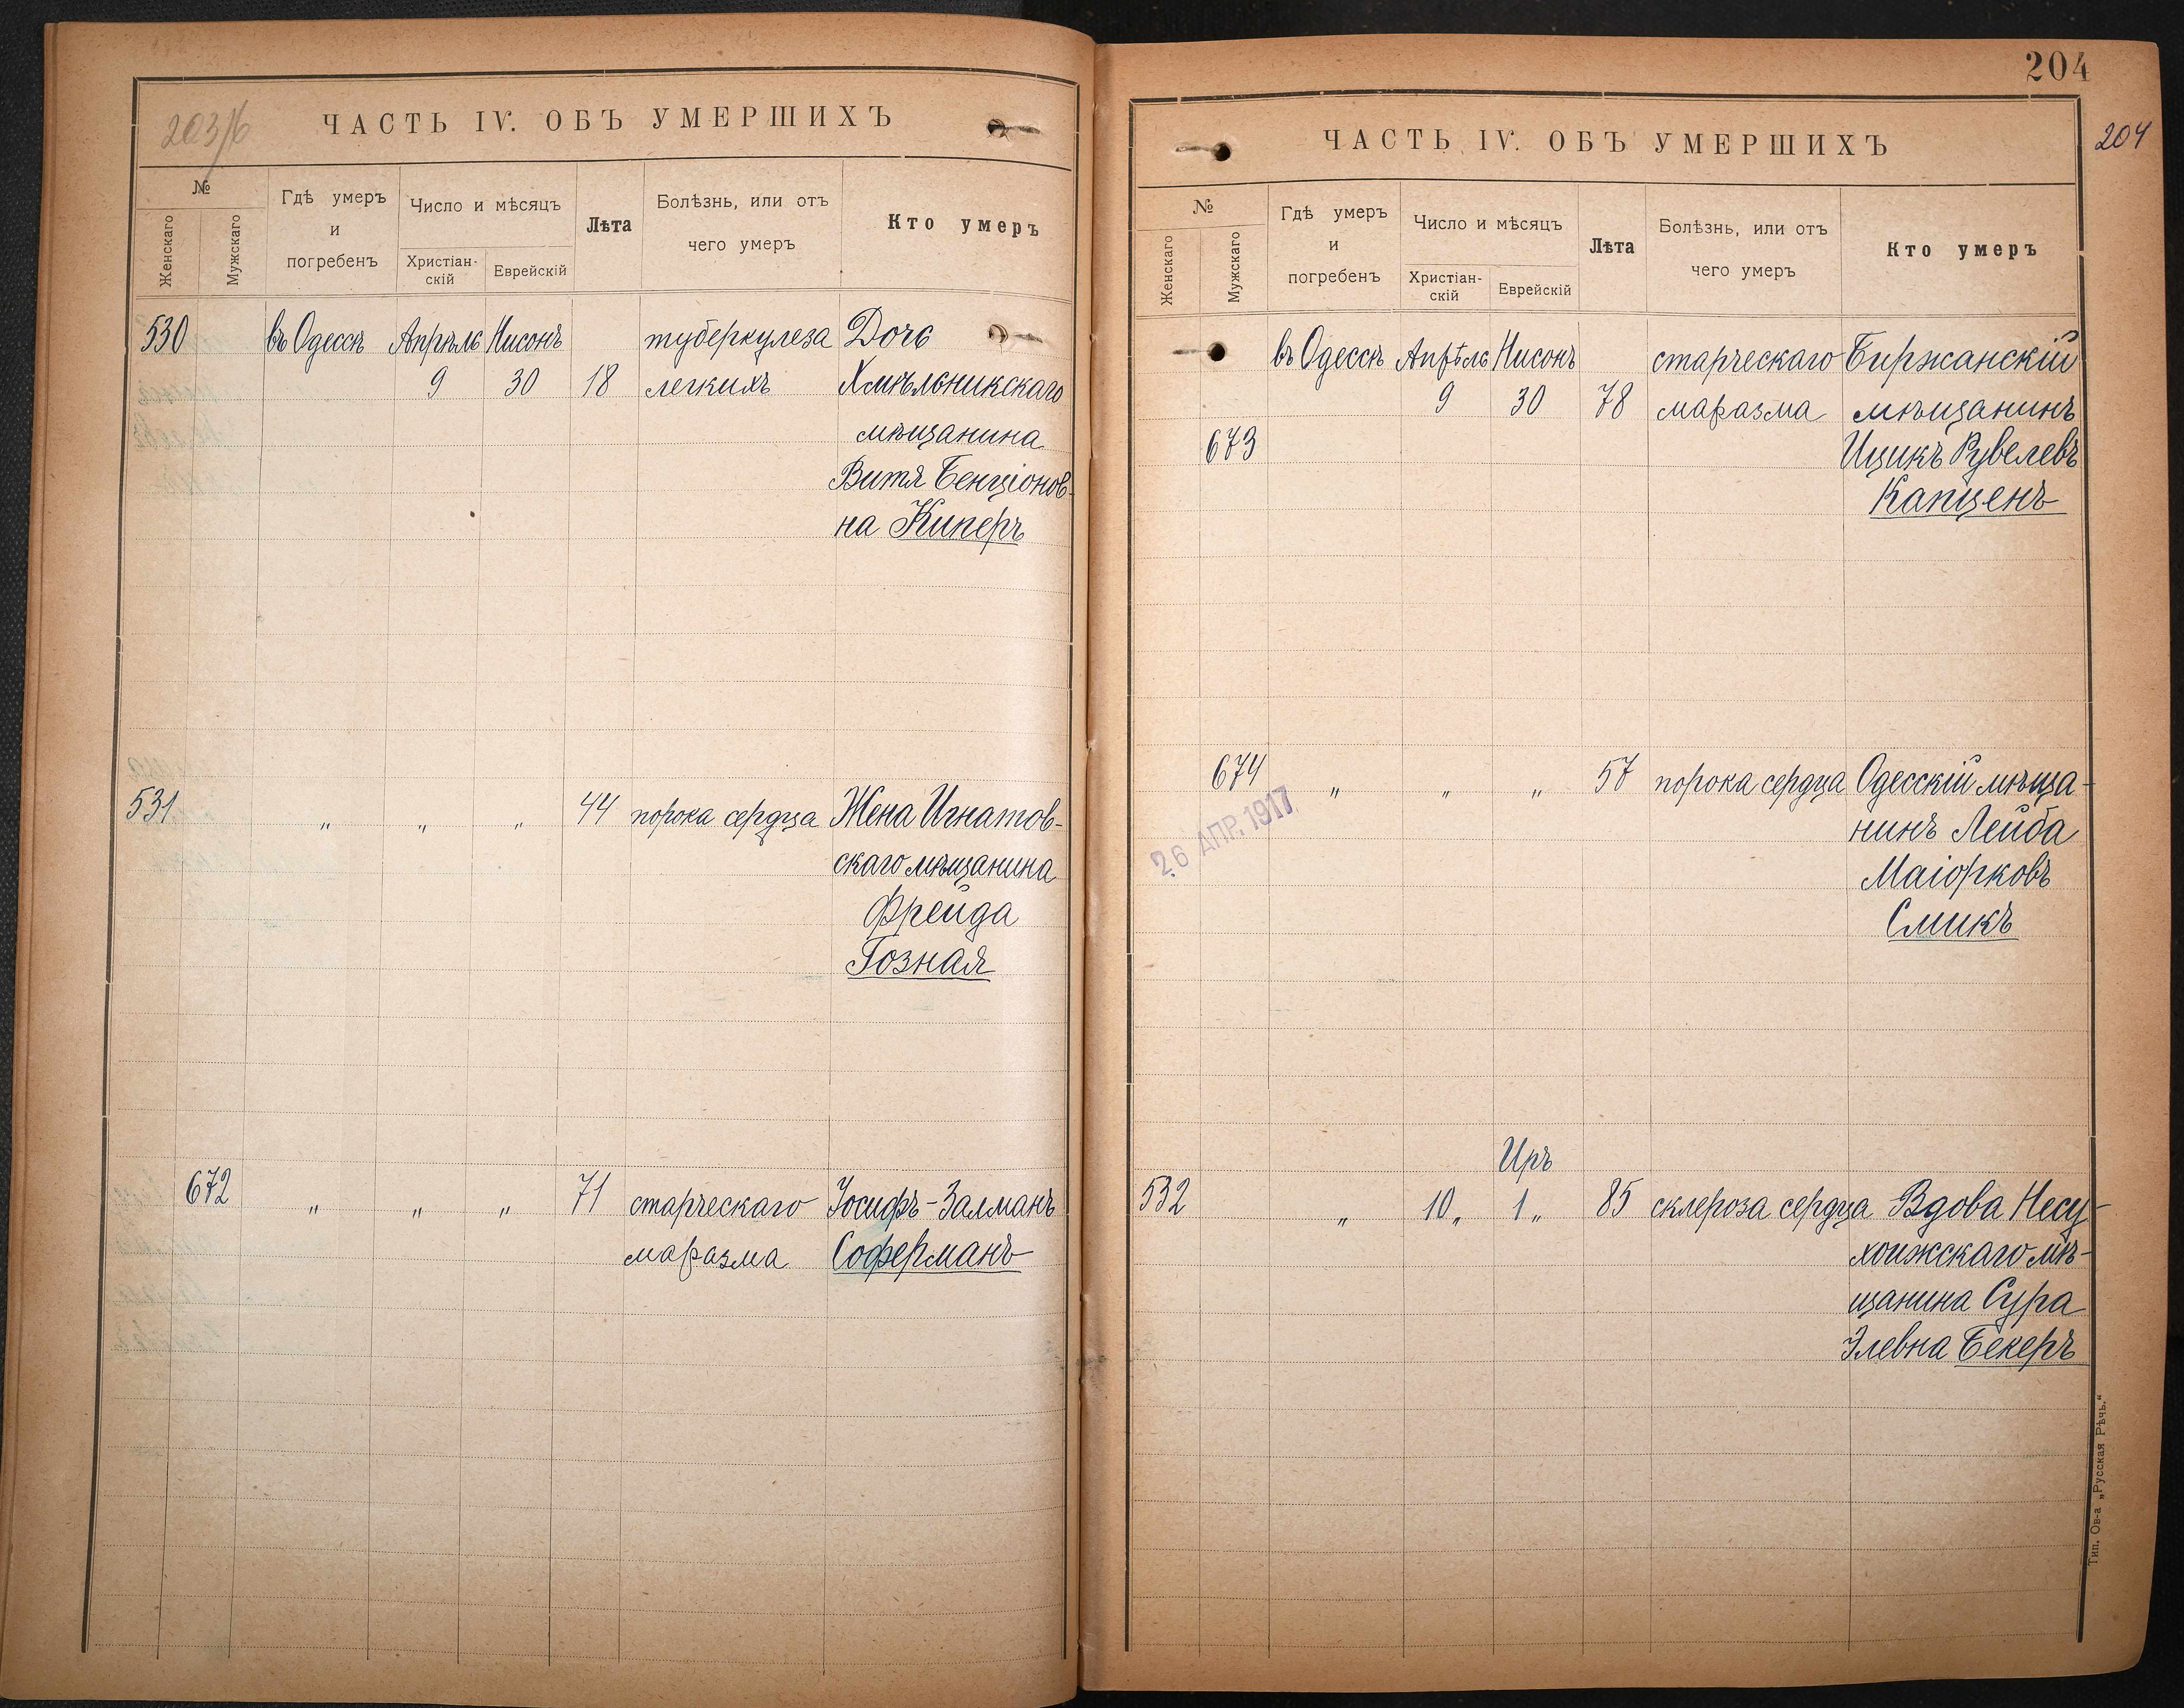 203/б
ЧАСТЬ IV. ОБЪ УМЕРШИХЪ
№
Женскаго
Мужскаго
Гдѣ умеръ
и
погребенъ
Число и мѣсяцъ
Христіан-
скій
Еврейскій
Лѣта
Болѣзнь, или отъ
чего умеръ
Кто умеръ
530 въ Одессѣ Апрѣль Нисонъ туберкулеза Дочь
9 30 18 легкихъ Хмѣльникскаго
мѣщанина
Витя Бенціонов-
на Киперъ
531 „ „ „ 44 порока сердца Жена Игнатов-
скаго мѣщанина
Фрейда
Гозная
672 „ „ „ 71 старческаго Іосифъ-Залманъ
маразма Соферманъ
204
204
ЧАСТЬ IV. ОБЪ УМЕРШИХЪ
№
Женскаго
Мужскаго
Гдѣ умеръ
и
погребенъ
Число и мѣсяцъ
Христіан-
скій
Еврейскій
Лѣта
Болѣзнь, или отъ
чего умеръ
Кто умеръ
въ Одессѣ Апрѣль Нисонъ старческаго Биржанскій
9 30 78 маразма мѣщанинъ
673 Ицикъ Рувелевъ
Капценъ
674 „ „ „ 57 порока сердца Одесскій мѣща-
нинъ Лейба
Маіорковъ
Смикъ
26 АПР. 1917
Иръ
532 „ 10„ 1„ 85 склероза сердца Вдова Несу-
хоижскаго мѣ-
щанина Сура
Элевна Бекеръ
Тип. Ов-а „Русская Рѣчь."